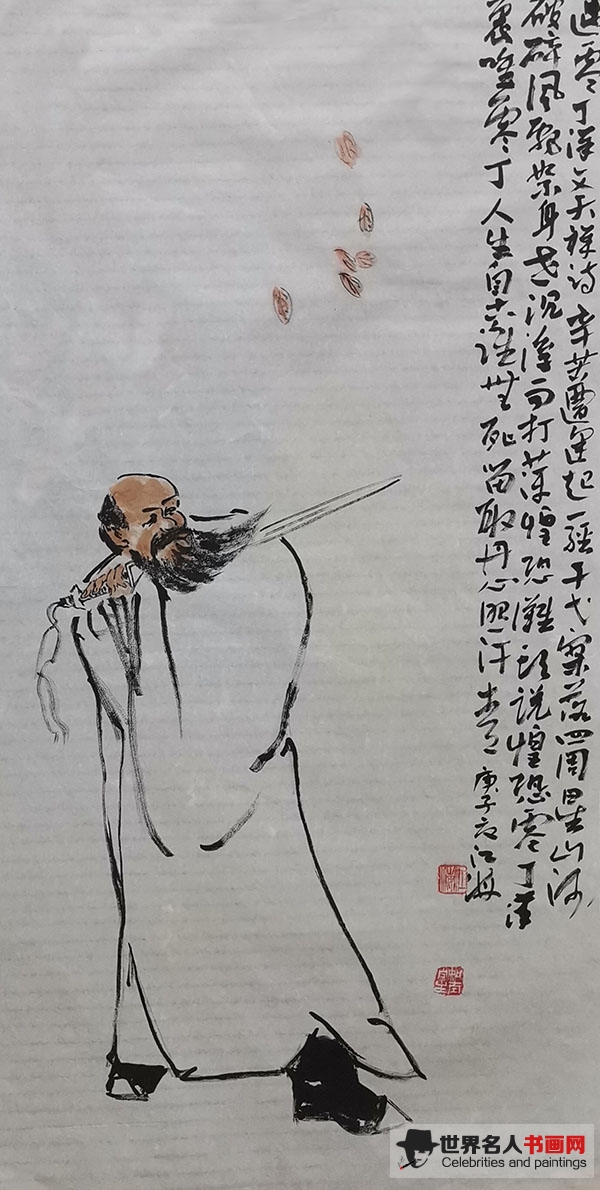 过零丁洋文天祥诗辛苦遭逢起一經干戈寥落四周星山河
破碎風飄絮身世沉浮雨打萍惶恐灘头説惶恐零丁洋
裏嘆零丁人生自古誰無死留取丹心照汗青
庚子江
世界名人书画网
Celebrities and paintings